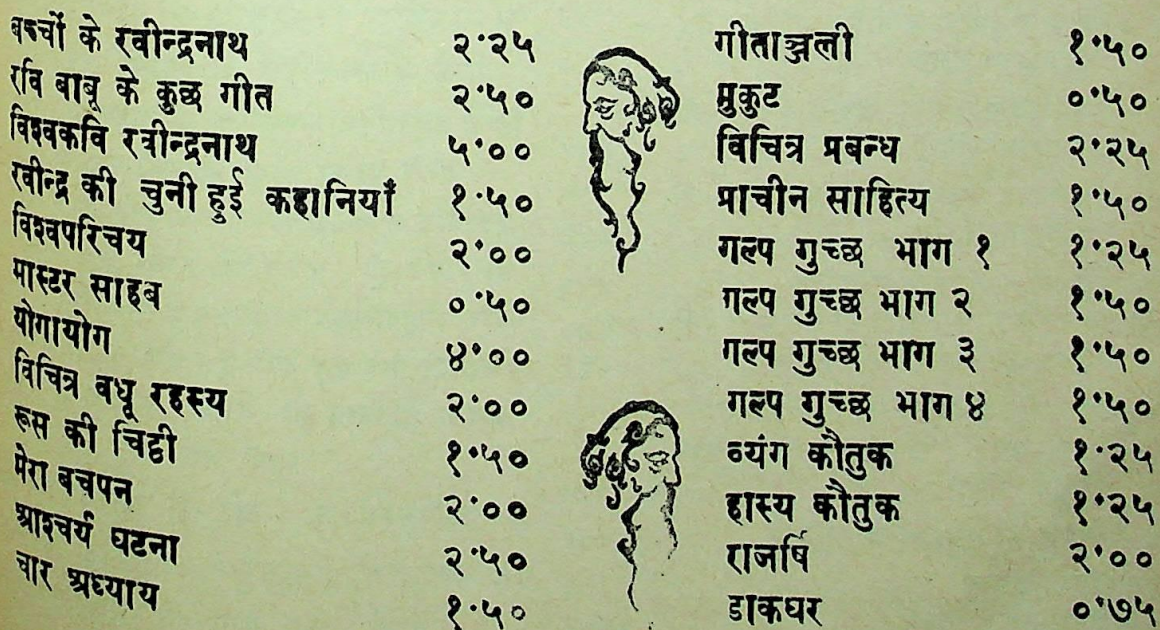 बच्चों के रवीन्द्रनाथ २·२५
रवि बाबू के कुछ गीत २·५०
विश्वकवि रवीन्द्रनाथ ५·००
रवीन्द्र की चुनी हुई कहानियाँ १·५०
विश्वपरिचय २·००
मास्टर साहब ०·५०
योगायोग ४·००
विचित्र वधू रहस्य २·००
रूस की चिट्ठी १·५०
मेरा बचपन २·००
आश्चर्य घटना २·५०
चार अध्याय १·५०
गीताञ्जली १·५०
मुकुट ०·५०
विचित्र प्रबन्ध २·२५
प्राचीन साहित्य १·५०
गल्प गुच्छ भाग १ १·२५
गल्प गुच्छ भाग २ १·५०
गल्प गुच्छ भाग ३ १·५०
गल्प गुच्छ भाग ४ १·५०
व्यंग कौतुक १·२५
हास्य कौतुक १·२५
राजर्षि २·००
डाकघर ०·७५